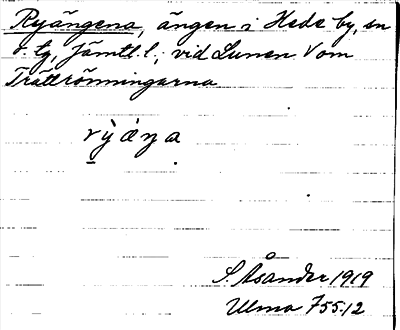 Ryängena, ängen i Hede by, sn
o. tg, Jämtl. l., vid Lunen V om
Trättrönningarna
rỳæŋa
S. Åsander 1919
Ulma 755:12